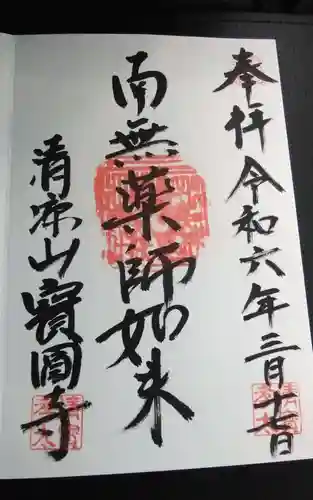 奉拝 令和六年三月十七日
南無薬師如来
清涼山 寳圓寺